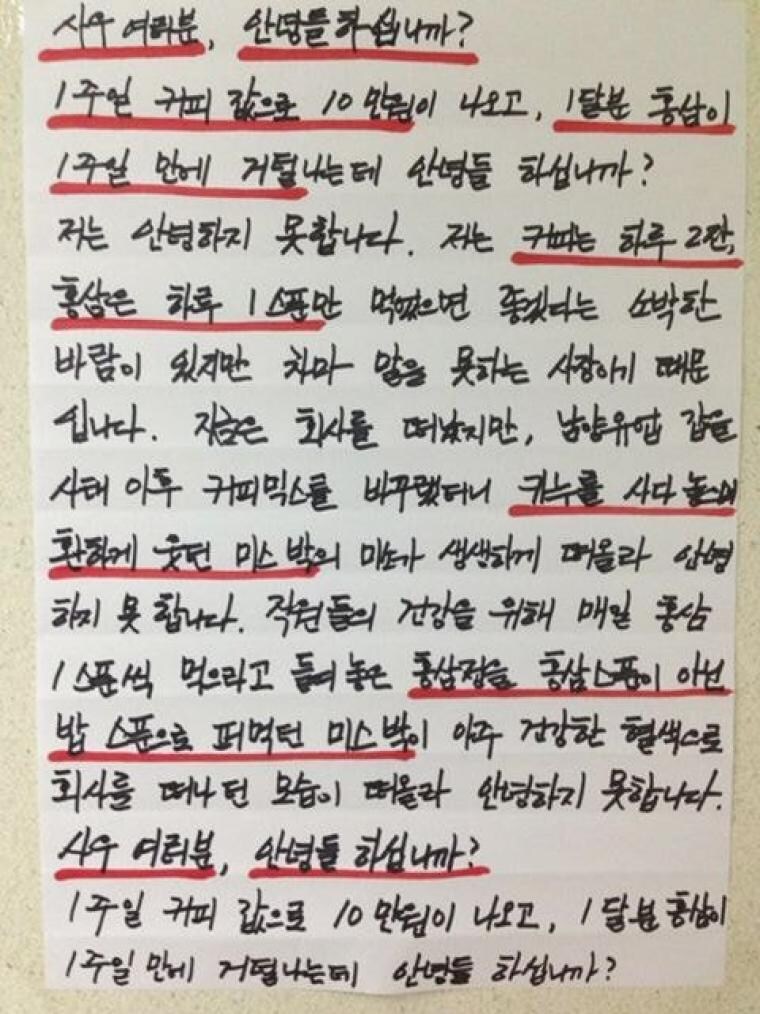 사우 여러분, 안녕들하십니까?
1주일 커피 값으로 10만원이 나오고, 1달분 홍삼이
1주일 만에 거덜나는데 안녕들 하십니까?
저는 안녕하지 못합니다. 저는 커피는 하루 2잔,
홍삼은 하루 1스푼만 먹었으면 좋겠다는 소박한
바람이 있지만 차마 말을 못하는 사장이기 때문
입니다. 지금은 회사를 떠났지만, 남양유업 갑을
사태 이후 커피믹스를 바꾸랬더니 카누를 사다 놓으며
환하게 웃던 미스 박의 미소가 생생하게 떠올라 안녕
하지 못 합니다. 직원들의 건강을 위해 매일 홍삼
1스푼씩 먹으라고 들여놓은 홍삼정을 홍삼스푼이 아닌
밥 스푼으로 퍼먹던 미스박이 아주 건강한 혈색으로
회사를 떠나던 모습이 떠올라 안녕하지 못합니다.
사우 여러분, 안녕들 하십니까?
1주일 커피 값으로 10만원이 나오고, 1달분 홍삼이
1주일 만에 거덜나는데 안녕들 하십니까?